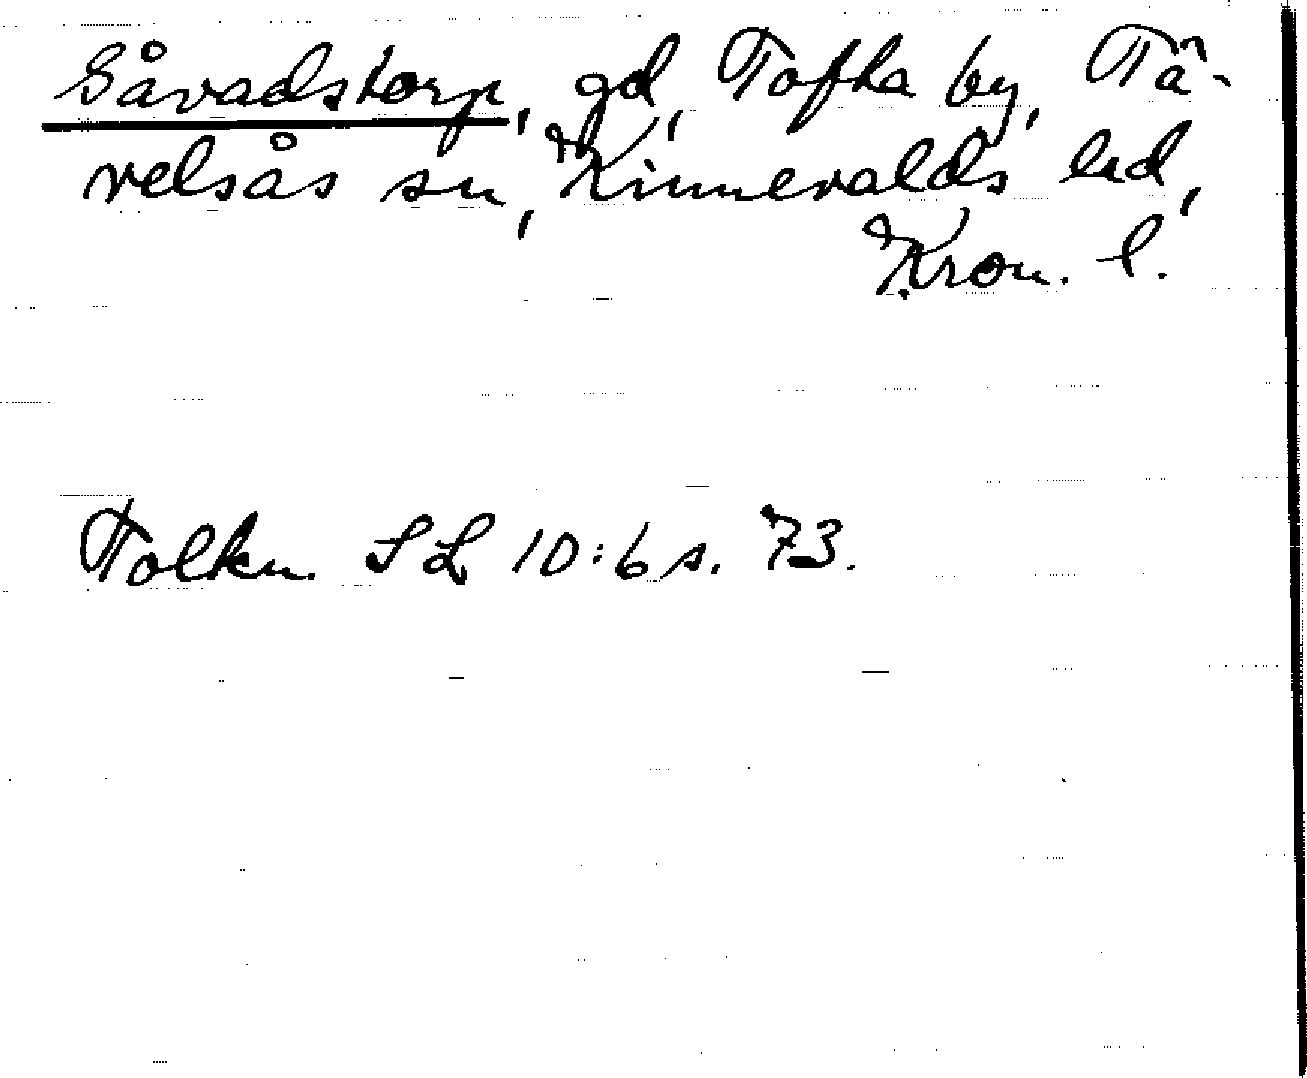 Såvadstorp, gd, Tofta by, Tä-
velsås sn, Kinnevalds hd,
Kron. l.
Tolkn. SL 10:6 s. 73.